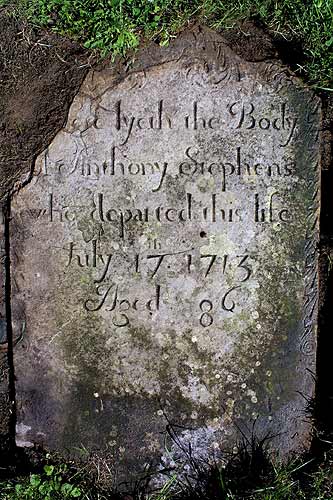 lyeth the Body
of Anthony Stephens
who departed this life
July 17th 1713
Aged 86